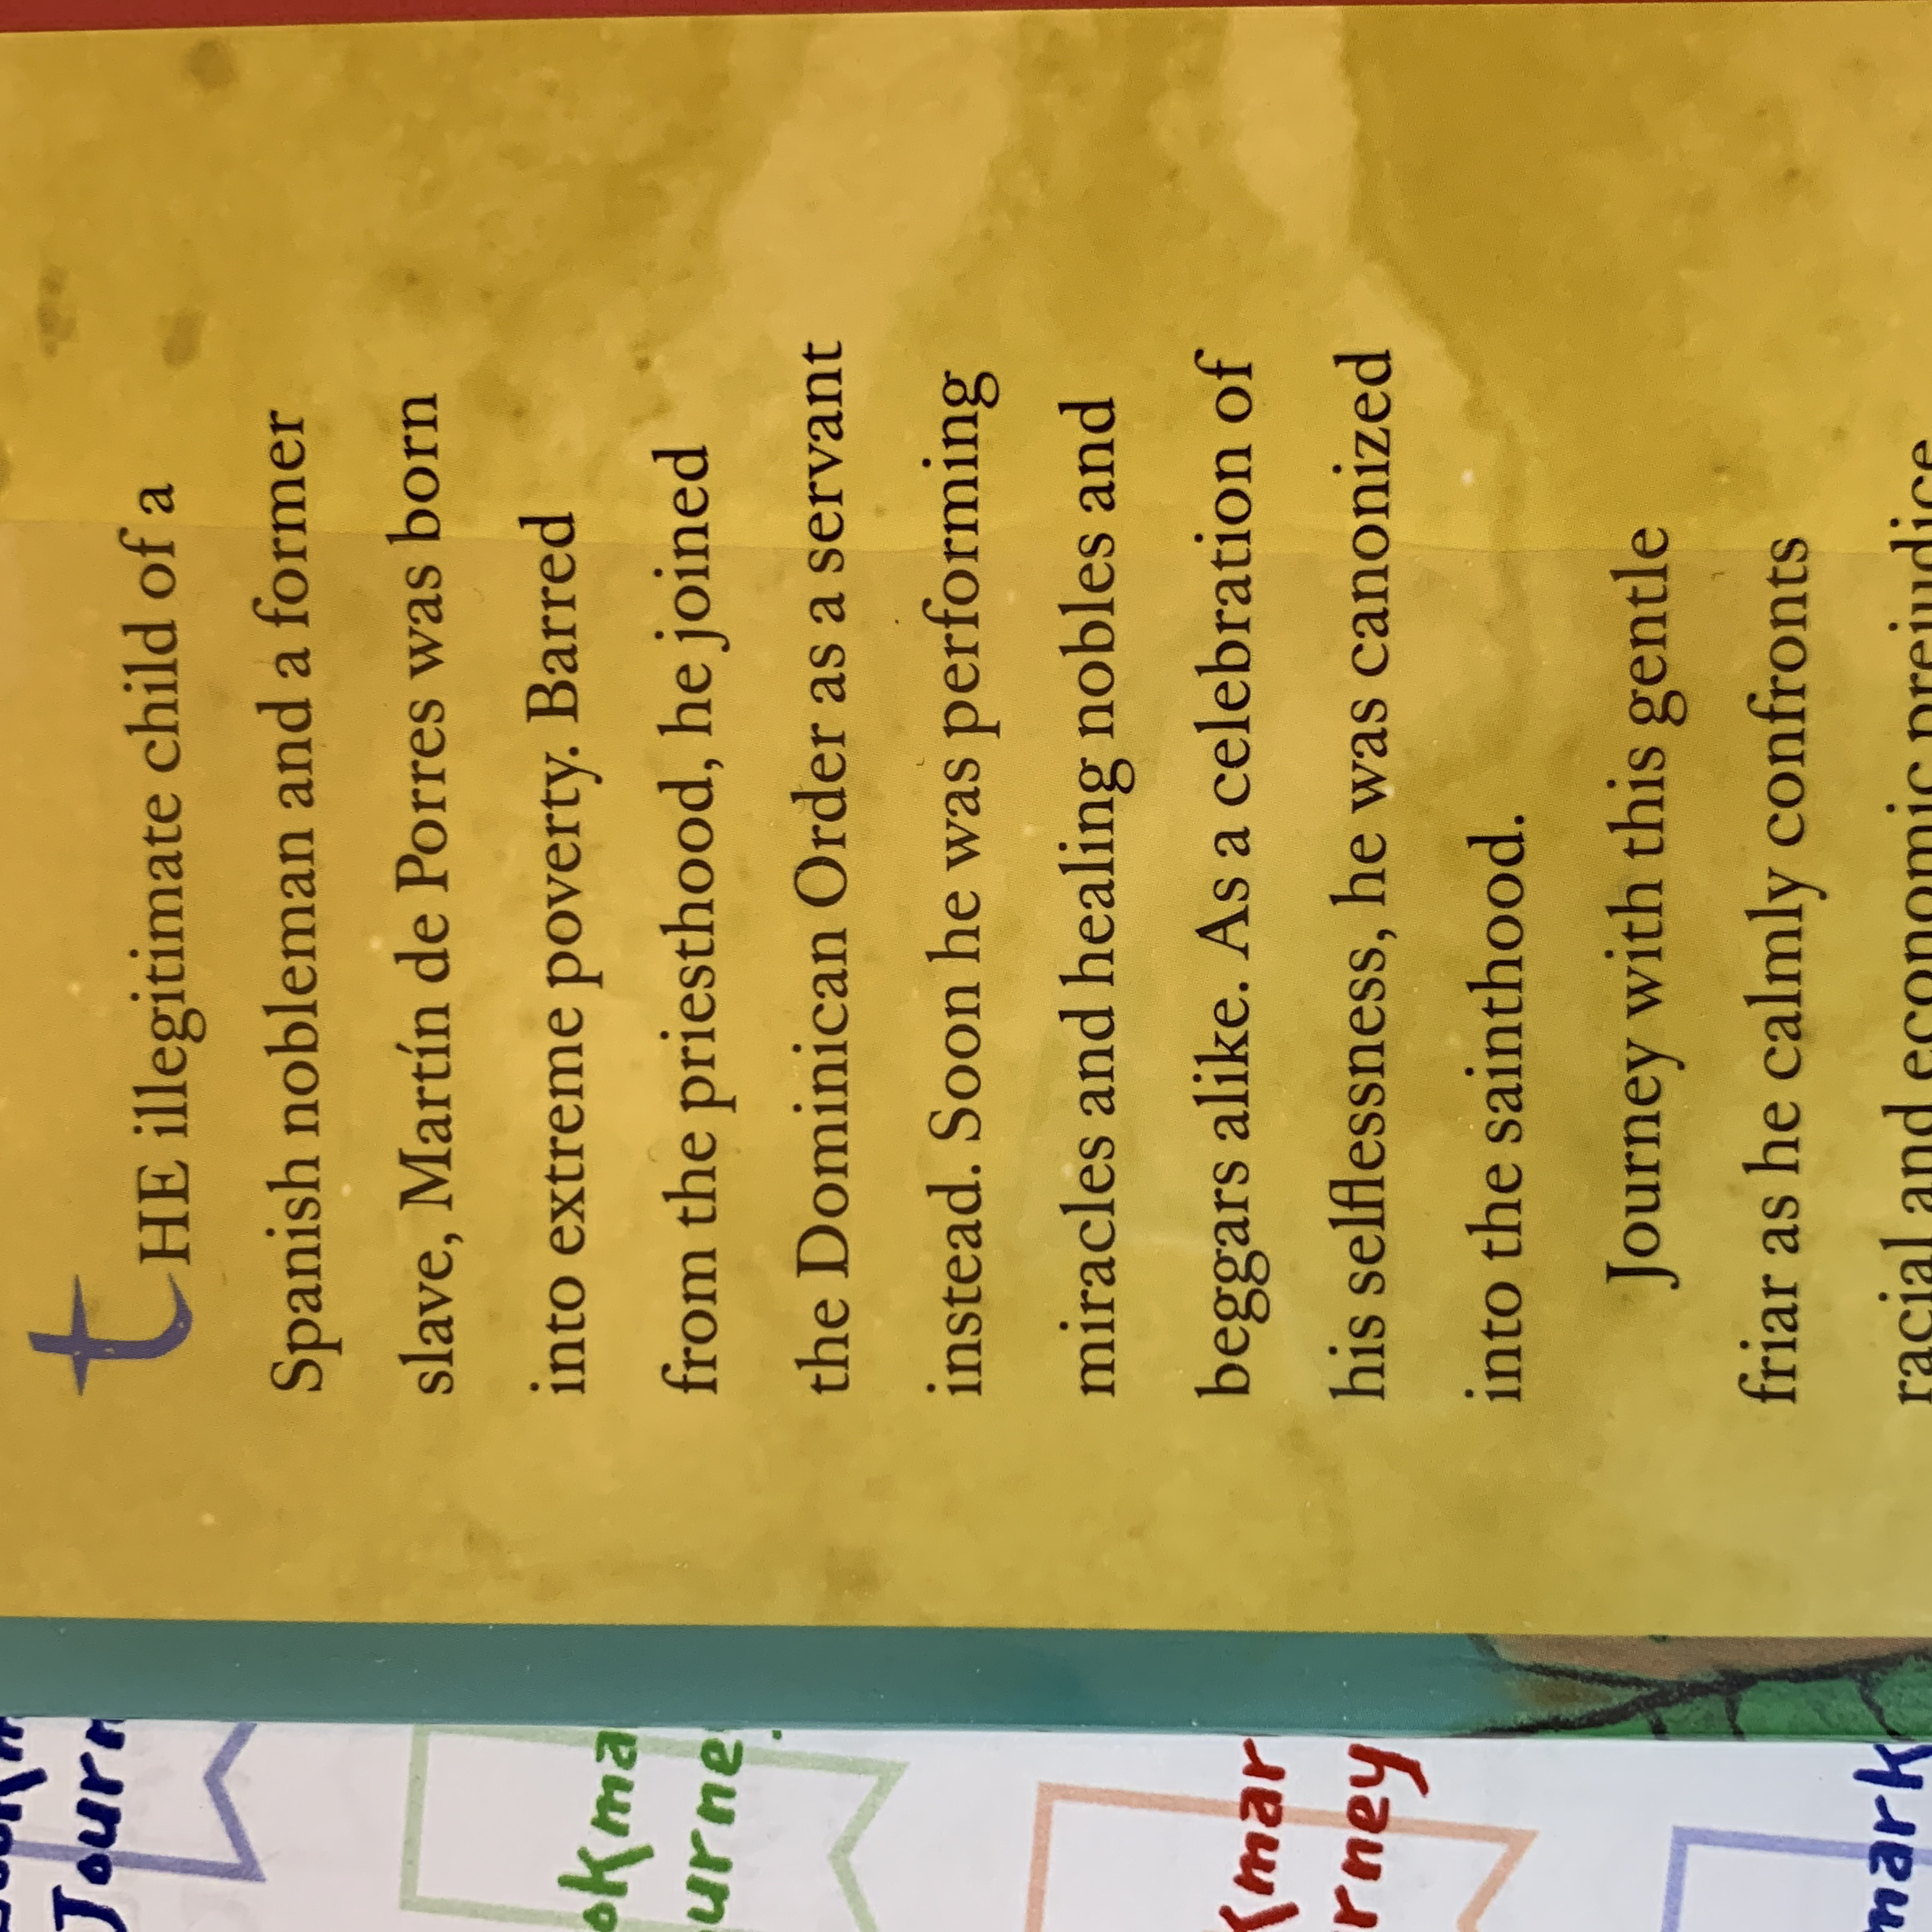 tHE illegitimate child of a
Spanish nobleman and a former
slave, Martín de Porres was born
into extreme poverty. Barred
from the priesthood, he joined
the Dominican Order as a servant
instead. Soon he was performing
miracles and healing nobles and
beggars alike. As a celebration of
his selflessness, he was canonized
into the sainthood.
Journey with this gentle
friar as he calmly confronts
racial and economic prejudice
Journ
okma
urne
kmar
rney
mark